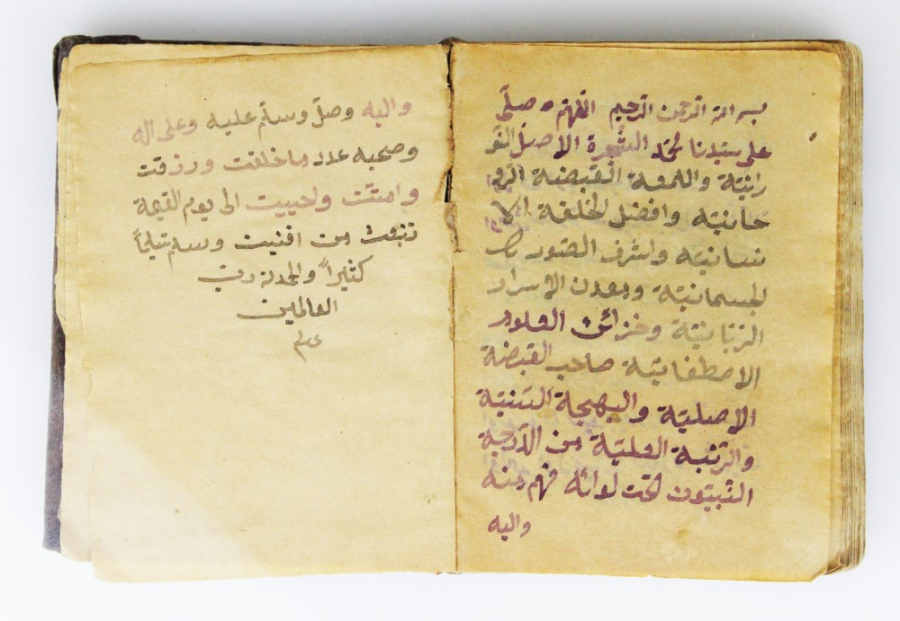 بسم الله الرحمن الرحيم اللهم صلى
على سيدنا محمد الشجرة الاصل النو
رانيّة واللمعة القبضة الرو
حانيّه وافضل الخلقة الا
نسانيّه واشرف الصور
الجسمانيّة ومعدن الاسرار
الربّانيّة وخزائن العلوم
الاصطفائيّة صاحب القبضة
الاصليّة والبهجة السّنيّة
والرتبة العليّة من اندرجة
النبيّون تحت لوائه فهم منه
واليه
واليه وصلّ وسلّم عليه وعلى اله
وصحبه عدد ما خلقت ورزقت
وامتّت واحييت الى يوم القيمة
تبعث من افنيت وسلم تسليماً
كثيراً والحمدلله ربّ
العالمين